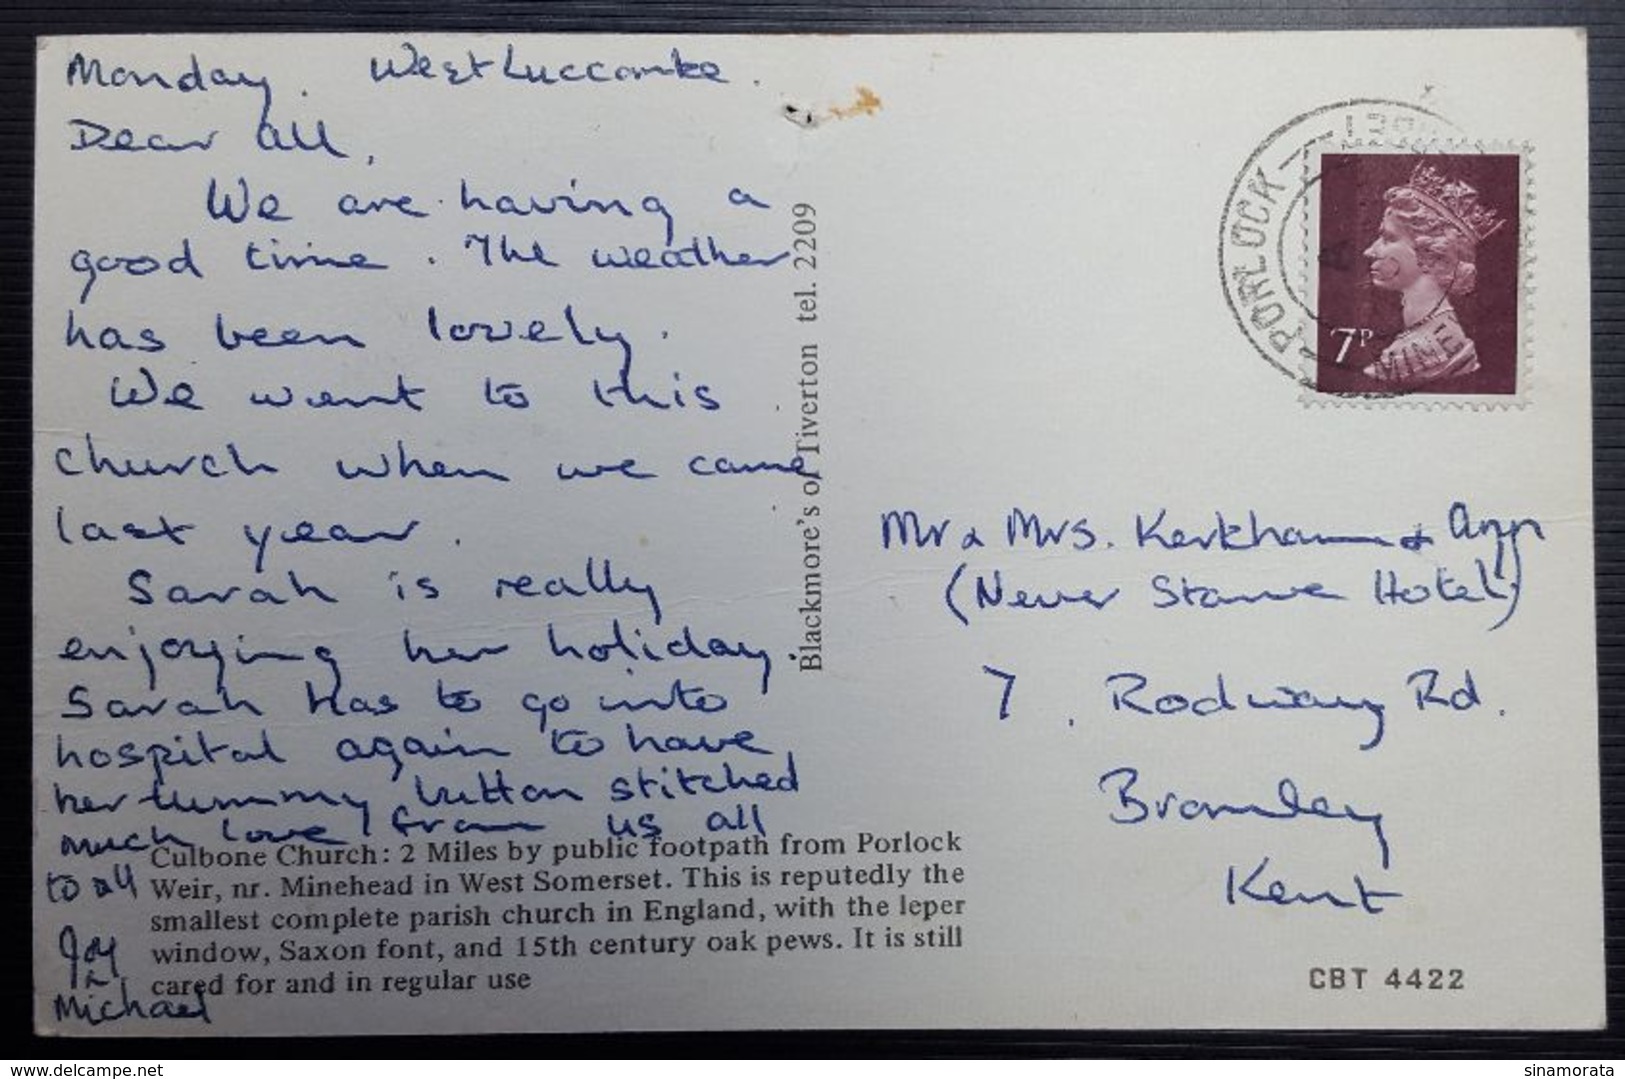 Monday. West Luccombe.
Dear all,
We are having a
good time. The weather
has been lovely.
We went to this
church when we came
last year.
Sarah is really
enjoying her holiday.
Sarah has to go into
hospital again to have
her tummy button stitched
much love from us all
to all
Joy
&
Michael
Blackmore's of Tiverton tel. 2209
Culbone Church: 2 Miles by public footpath from Porlock
Weir, nr. Minehead in West Somerset. This is reputedly the
smallest complete parish church in England, with the leper
window, Saxon font, and 15th century oak pews. It is still
cared for and in regular use
PORLOCK
MINE
7P
Mr & Mrs. Kerkham & Ann
(Never Starve Hotel)
7, Rodway Rd.
Bromley
Kent
CBT 4422
www.delcampe.net
sinamorata